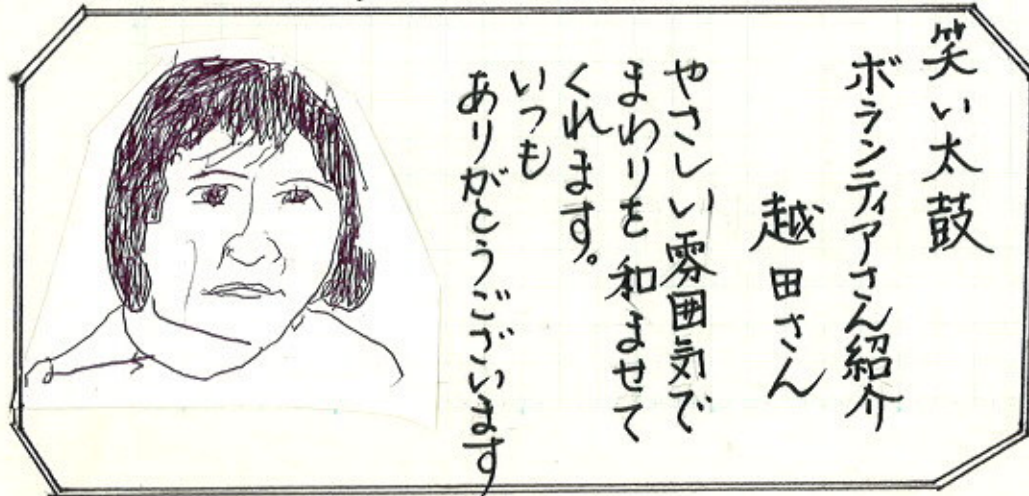 笑い太鼓
ボランティアさん紹介
越田さん
やさしい雰囲気で
まわりを和ませて
くれます。
いつも
ありがとうございます